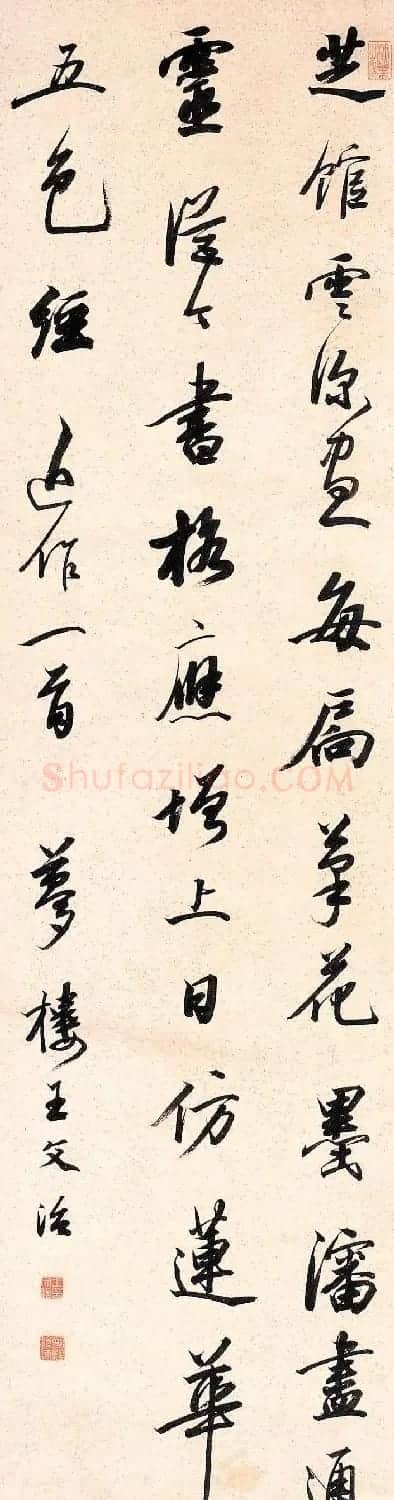 芝館雲深晝每扃筆花墨瀋盡通
靈從今書格應增上日仿蓮華
五色經 近作一首 夢樓王文治
Shufaziliao.COM